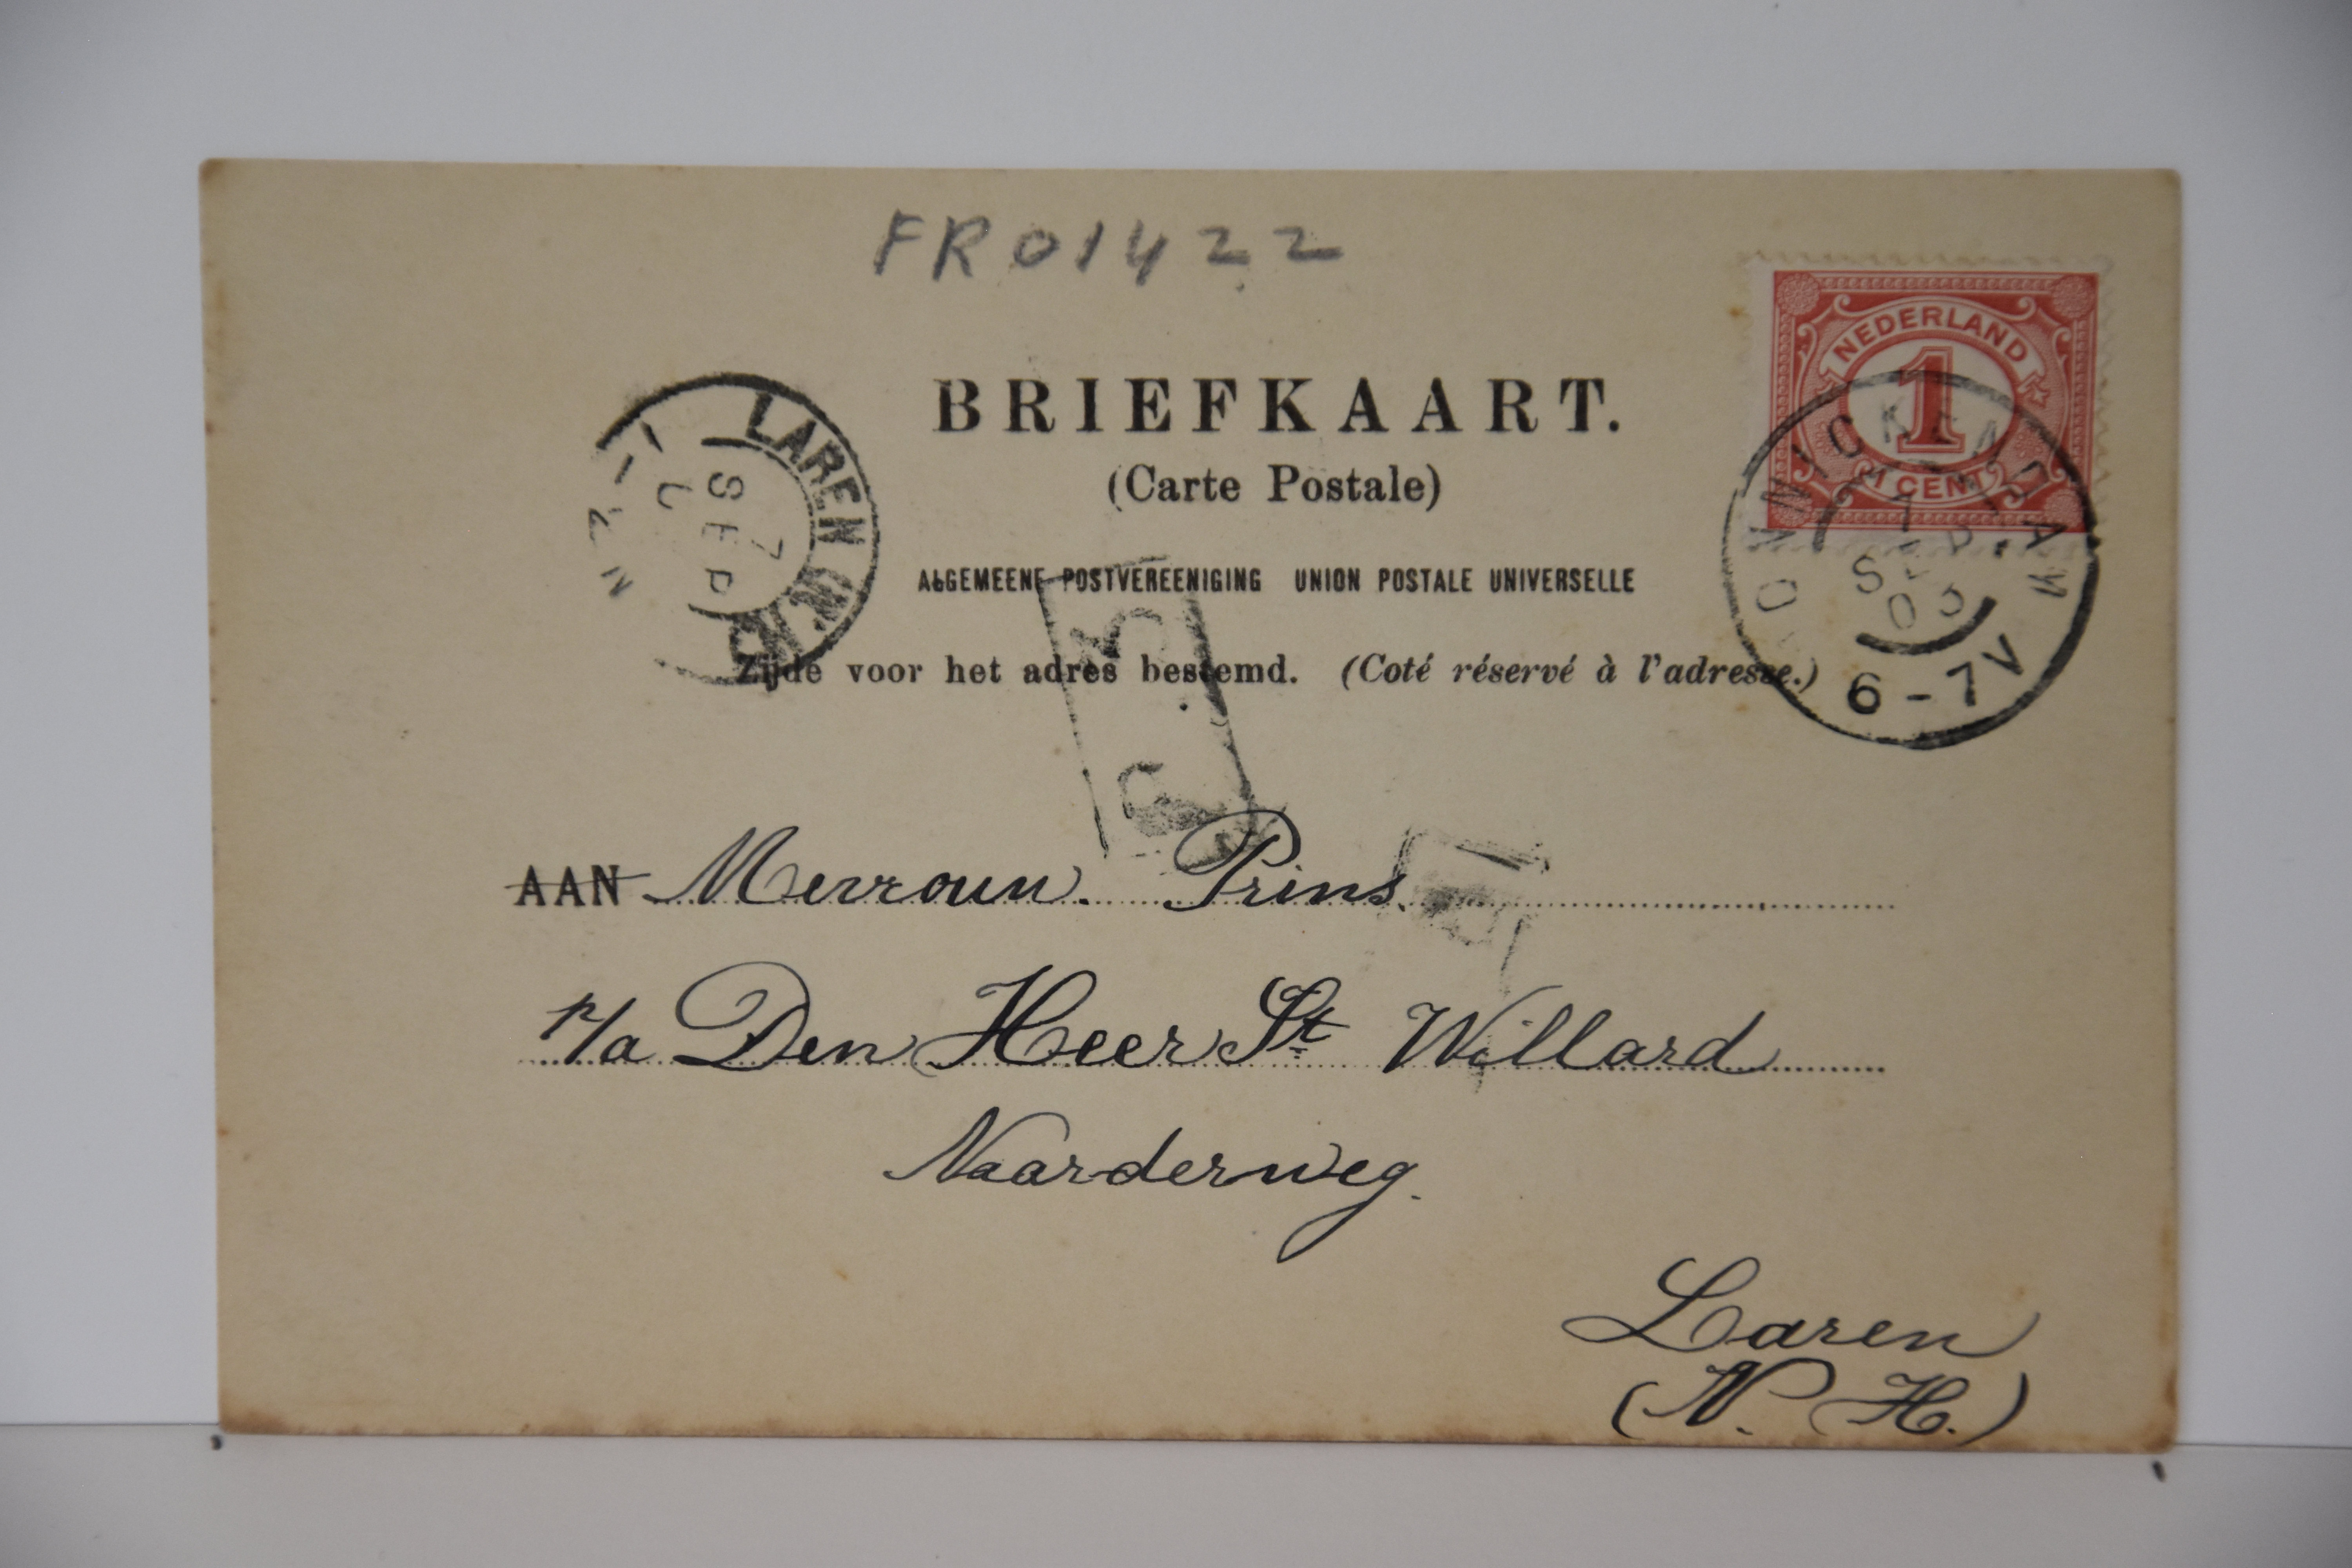 FR01422
BRIEFKAART.
(Carte Postale)
ALGEMEENE POSTVEREENIGING UNION POSTALE UNIVERSELLE
Zijde voor het adres bestemd. (Coté réservé à l'adresse.)
NEDERLAND
1
1 CENT
6-7V
LAREN (N.H.)
7
SEP
AAN Mevrouw. Prins.
p/a Den Heer St Willard
Naarderweg.
Laren
(N. H.)